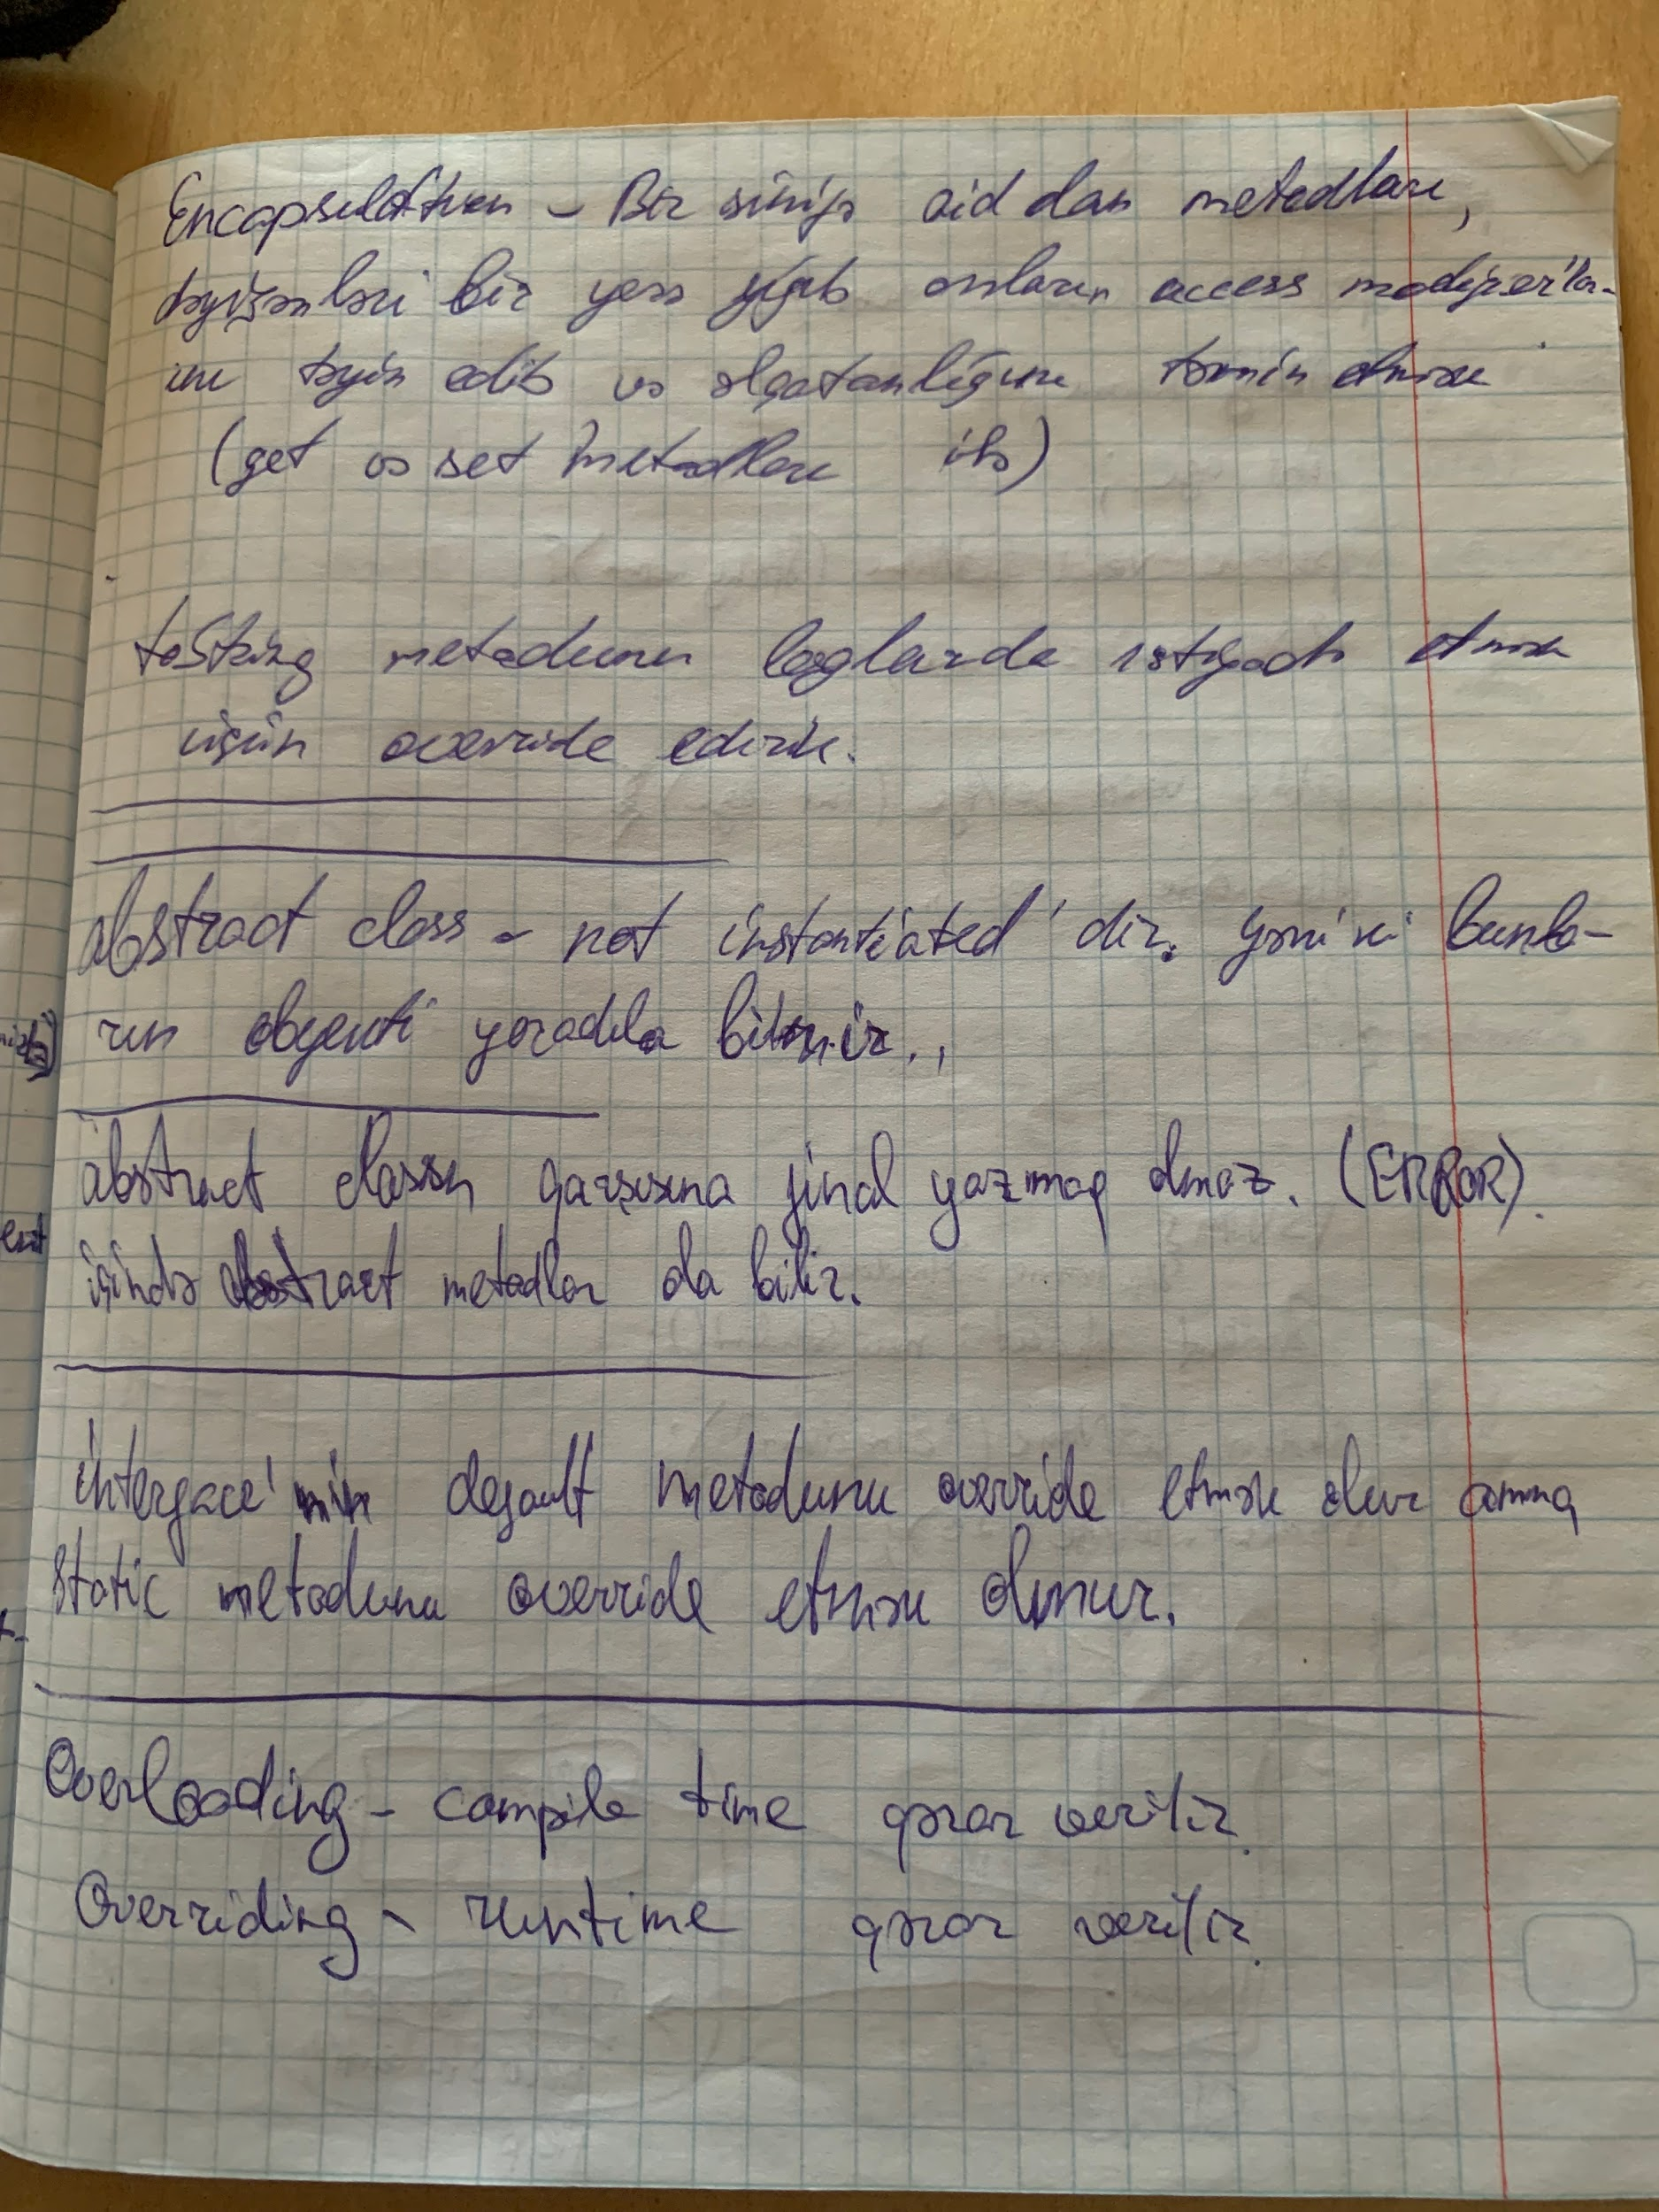 Encapsulation - Bir sinifə aid olan metodları,
dəyişənləri bir yerə yığıb onların access modifier'lə-
ini təyin edib və əlçatanlığını təmin etmək
(get və set metodları ilə)
toString metodunu loglarda istifadə etmək
üçün override edirik.
abstract class - not instantiated'dir. Yəni ki bunla-
rın obyekti yaradıla bilmir.
abstract classın qarşısına final yazmaq olmaz. (ERROR).
içində abstract metodlar ola bilir.
interface'nin default metodunu override etmək olur amma
static metodunu override etmək olmur.
Overloading - compile time qərar verilir.
Overriding - runtime qərar verilir.